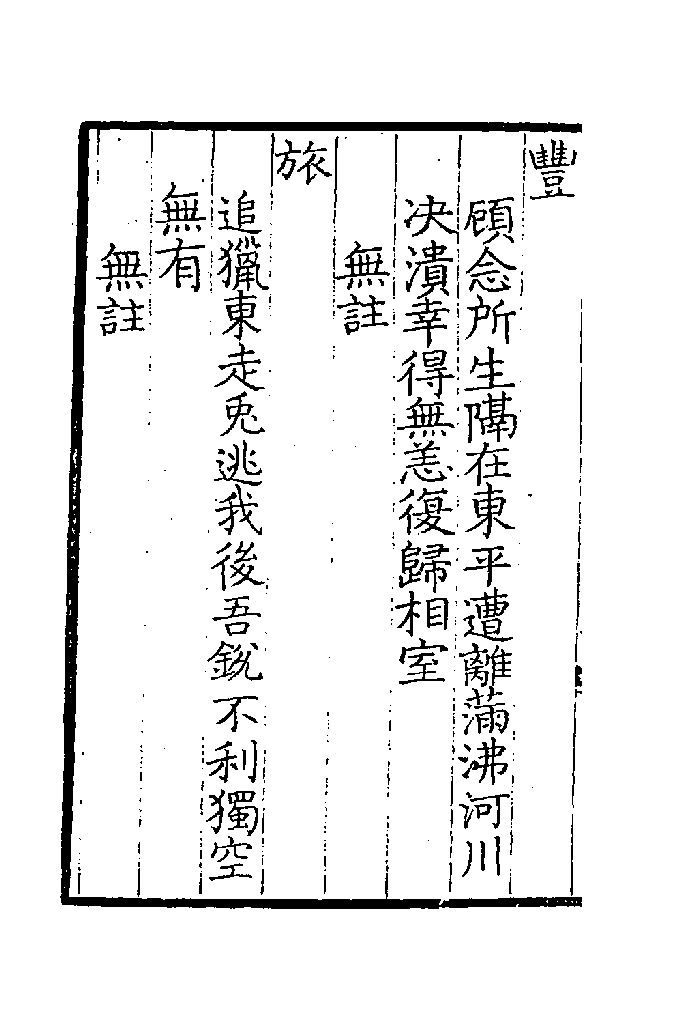 豐
顧念所生隔在東平遭離滿沸河川
决潰幸得無恙復歸相室
無註
旅
追獵東走兎逃我後吾銳不利獨空
無有
無註